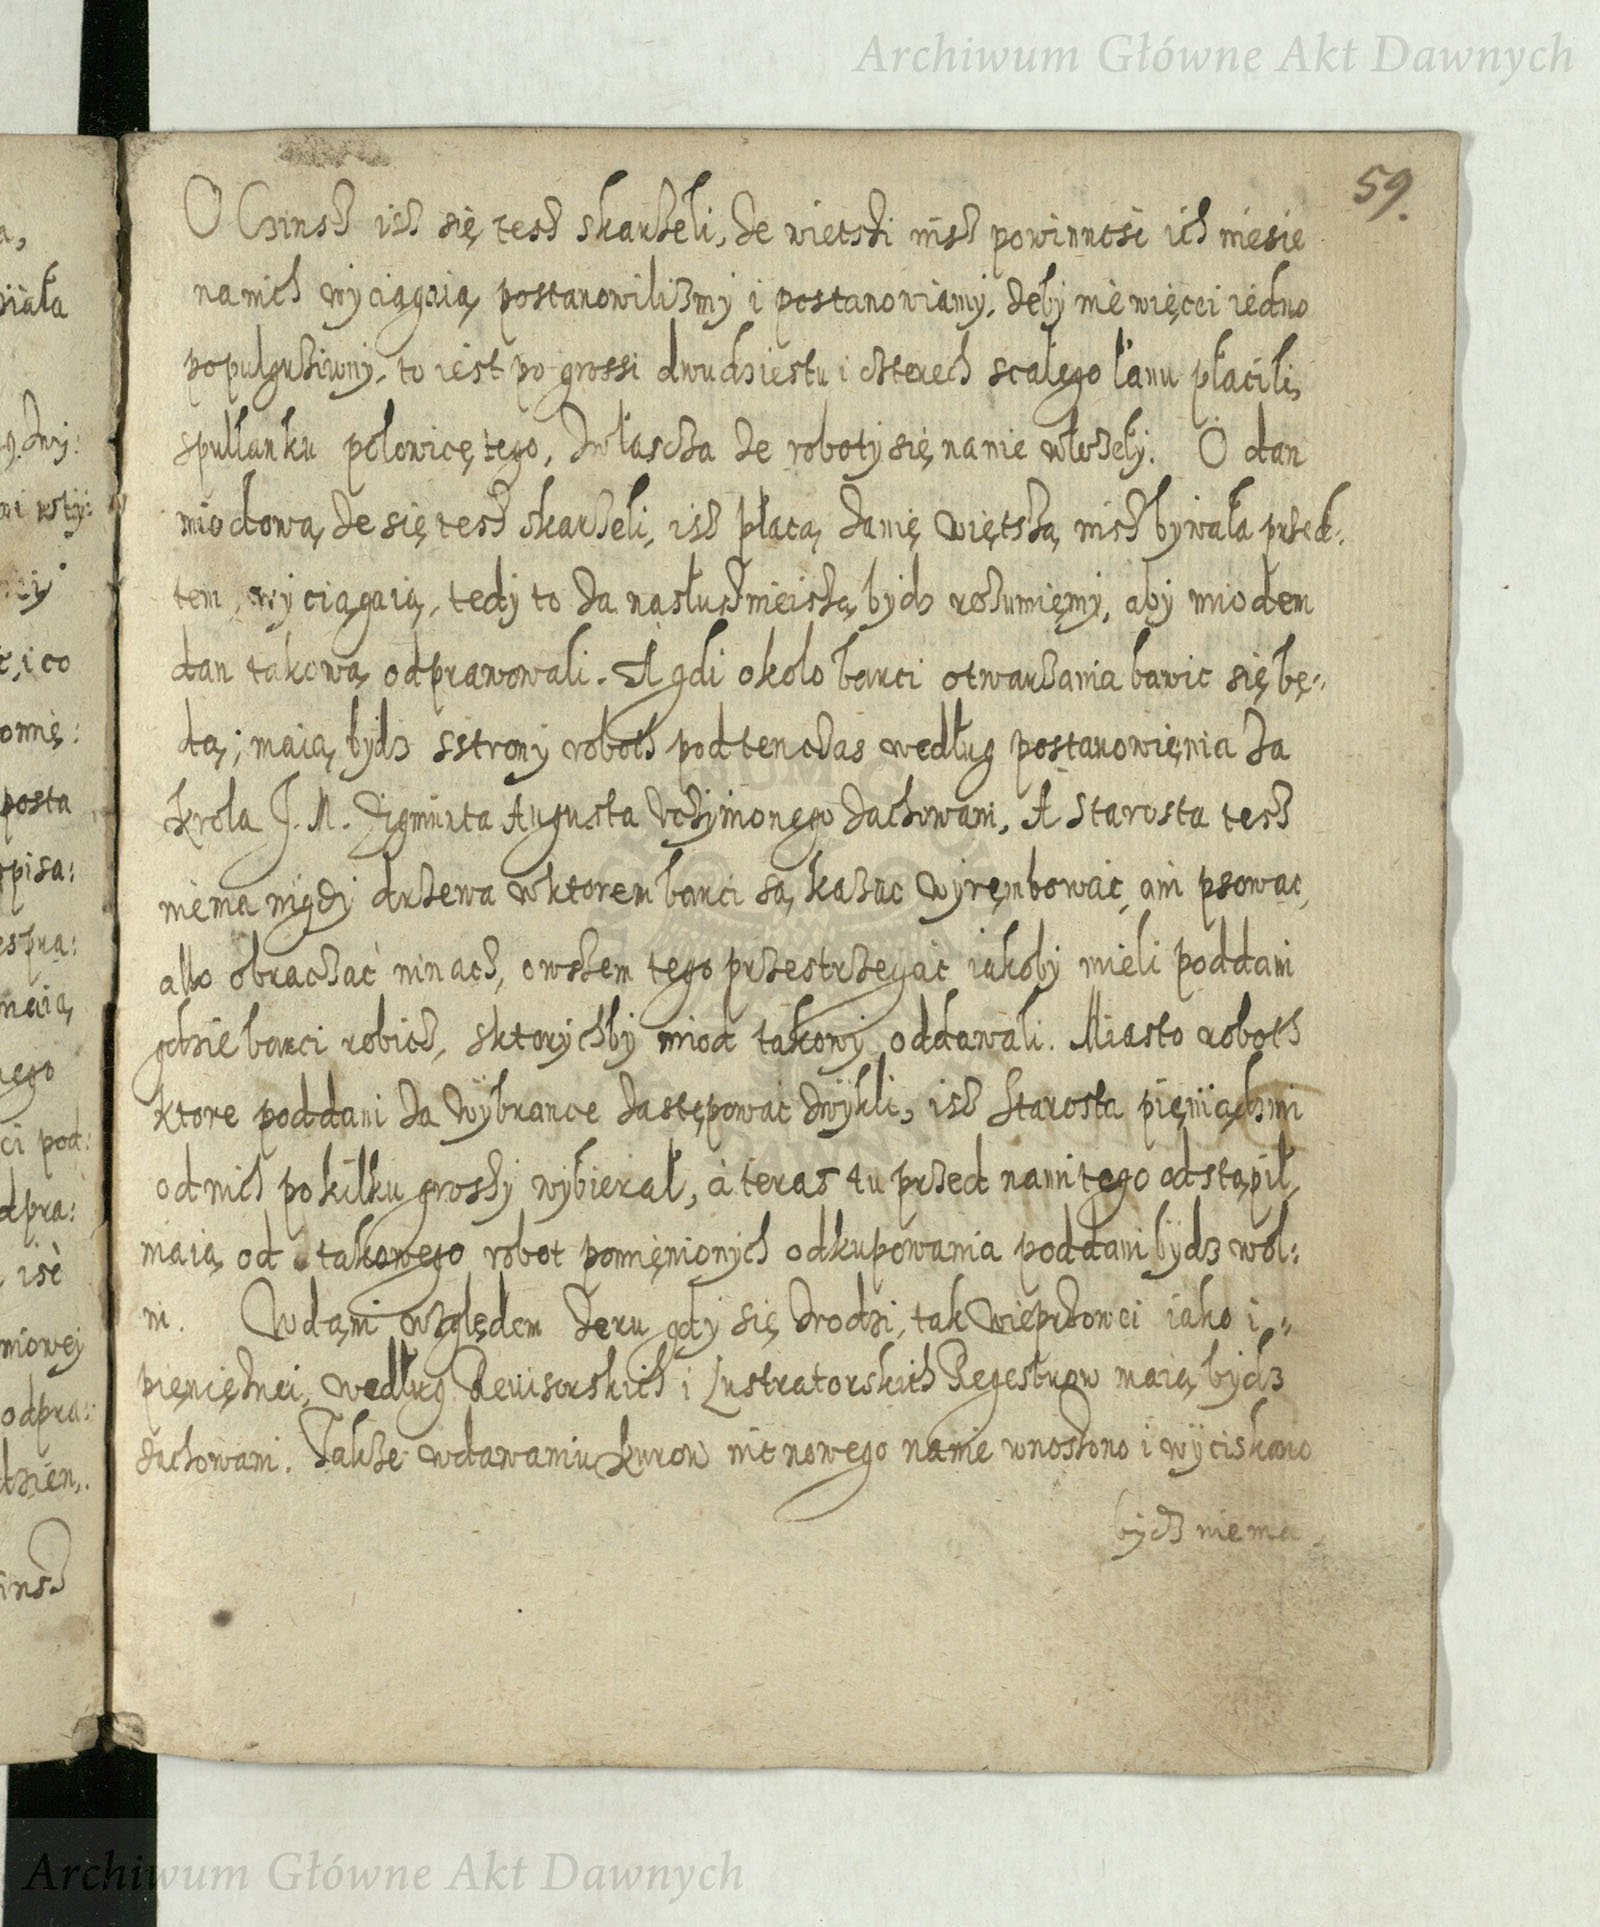 Archiwum Główne Akt Dawnych
59.
O Czinsz isz się tesz skarżeli, że wietszi nisz powinnosc ich niesie
nanich wyciągaią, postanowilismy i postanowiamy, żeby nie więcei iedno
populgrziwny, to iest po grossi dwudziestu i czterech scałego łanu płacili,
spułłanku połowicę tego, zwłascza że roboty się nanie włożeły. O dan
miodową, że się tesz skarżeli, isz płacą, danię więtszą, nisz bywała przed:
tem, wyciągaią, tedy to za nasłusznieiszą bydz rozumięmy, aby miodem
dan takową odprawowali. A gdi okolo barci otwarzania bawic się bę:
dą; maią bydz sstrony roboth podtenczas według postanowięnia za
krola J. M. Zigmunta Augusta vczynionego zachowani. A Starosta tesz
niema nigdy drzewa wktorem barci są, kazac wyrębowac, ani psowac,
albo obraczac ninacz, owszem tego przestrzegac iakoby mieli poddani
gdzie barci robich, sktorychby miod takowy oddawali. Miasto roboth
ktore poddani za wybrance zastępowac zwykli, isz Starosta pięniądzmi
odnich pokilku groszy wybierał, a teras tu przed namitego odstąpił,
maią od takowego robot pomięnionych odkupowania poddani bydz wol:
ni. Wdani względem żeru gdy się zrodzi, tak wieprzowei iako i
pięniężnei, według Reuisorskich i Lustratorskich Regestrow maią bydz
zachowani. Także wdawaniu kurow nic nowego nanie wnoszono i wyciskano
bydz niema.
Archiwum Główne Akt Dawnych